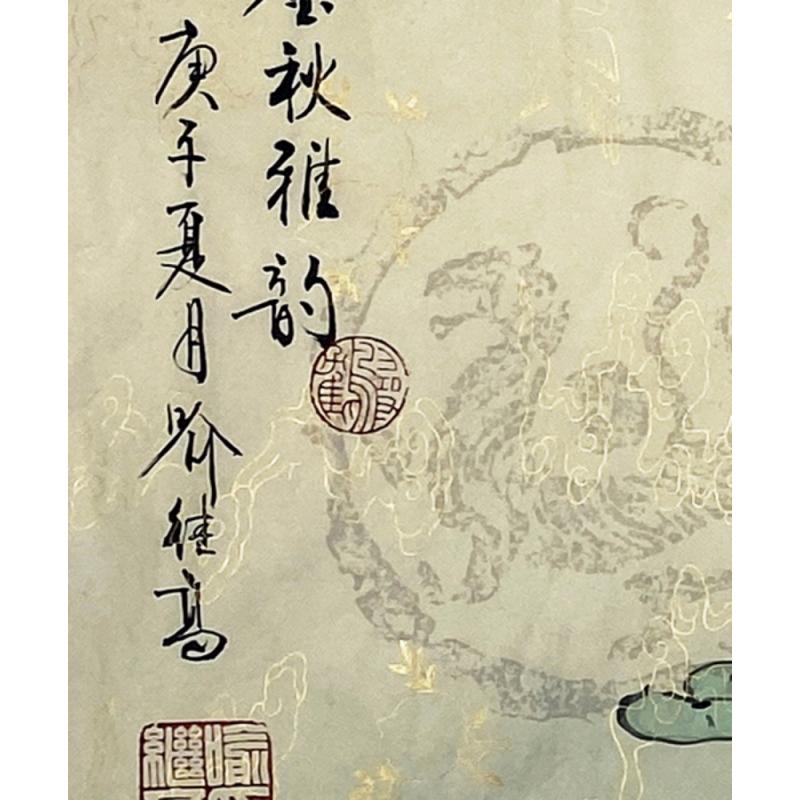 金秋雅韵
庚午夏月喻继高
喻
繼